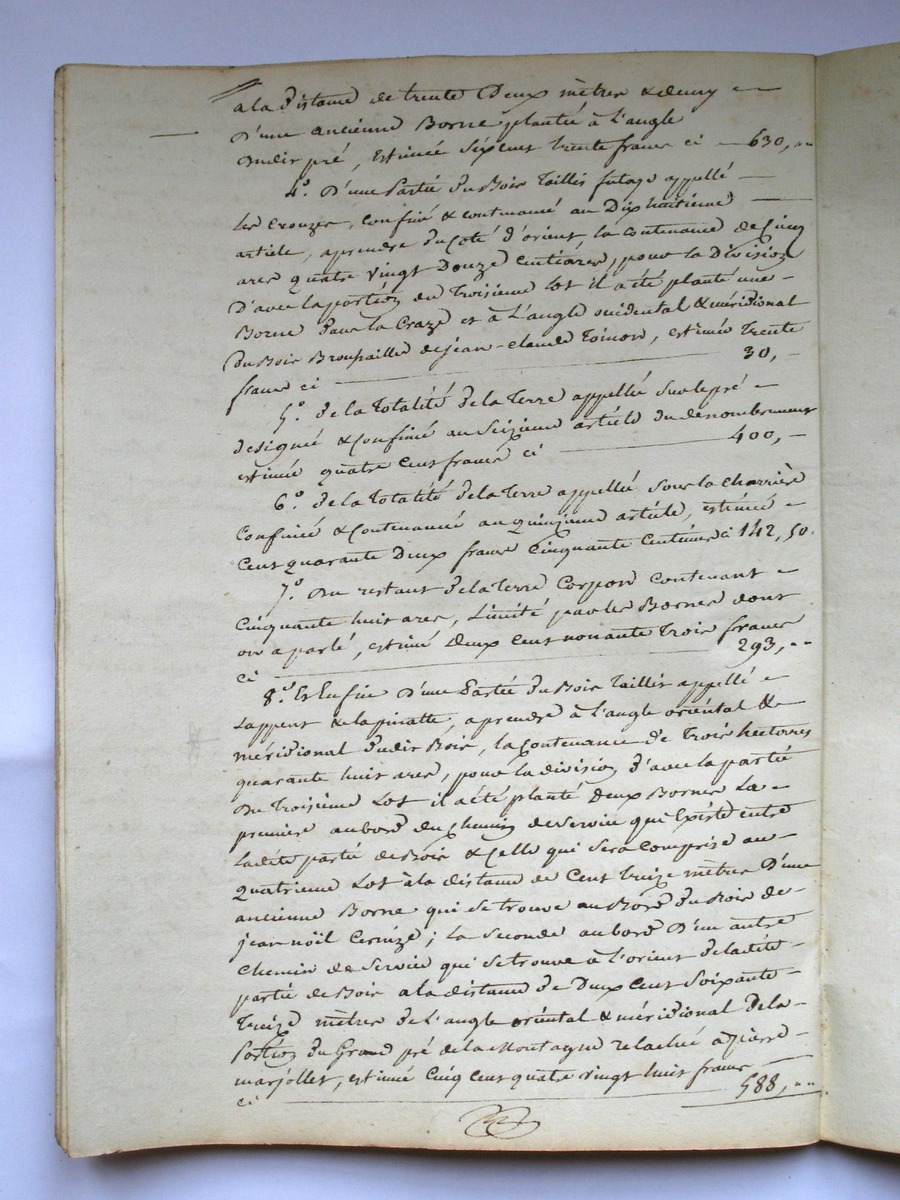 a la distance de trente Deux mètres & demy
D'une ancienne Borne plantée à L'angle
dudit pré, Estimée Sixcent trente francs ci 630,
4.° D'une Partie du Bois Taillis futage appellé
Les Crouzes, confiné & contenancé au Dixhuitieme
article, aprendre du Coté d'orient, la contenance de Cinq
ares quatre vingt Douze Centiares, pour la Division
D'avec la portion du Troisieme Lot il a été planté une
Borne dans la Craze et à L'angle occidental & méridional
du Bois Broussaille de jean-claude Toinon, estimée Trente
francs ci 30,
5.° de la Totalité de la Terre appellée Sur le pré
designé & Confinée au Seizieme article du denombrement
estimée quatre cent francs ci 400,
6.° de la Totalité de la Terre appellée Sous la Charrière
Confinée & Contenancée au quinzieme article, estimée
Cent quarante Deux francs Cinquante Centimes ci 142, 50.
7.° Du restant de la Terre Corpon Contenant
Cinquante huit ares, Limité par les Bornes dont
on a parlé, estimé Deux Cent nonante Trois francs
ci 293,
8.° Et Enfin D'une Partie du Bois Taillis appellé
Lappent & la pinatte, a prendre à L'angle oriéntal &
méridional dudit Bois, la Contenance de Trois hectares
quarante huit ares, pour la division d'avec la partie
du Troisième Lot il a été planté Deux Bornes La
premiere au bord du Chemin de Service qui Existe entre
Ladite partie de Bois & Celle qui Sera Comprise au
Quatrieme Lot à la distance de Cent treize mètres D'une
ancienne Borne qui se trouve au Bord du Bois de
jean noël Cernize; La Seconde au bord D'un autre
Chemin de Service qui se trouve à L'orient de ladite
partie de Bois a la distance de Deux Cent Soixante
Treize mètres de L'angle oriéntal & méridional De la
Portion du Grand pré de la Montagne relachée a Pierre
marjollet, estimée Cinq Cent quatre vingt huit francs
ci 588,